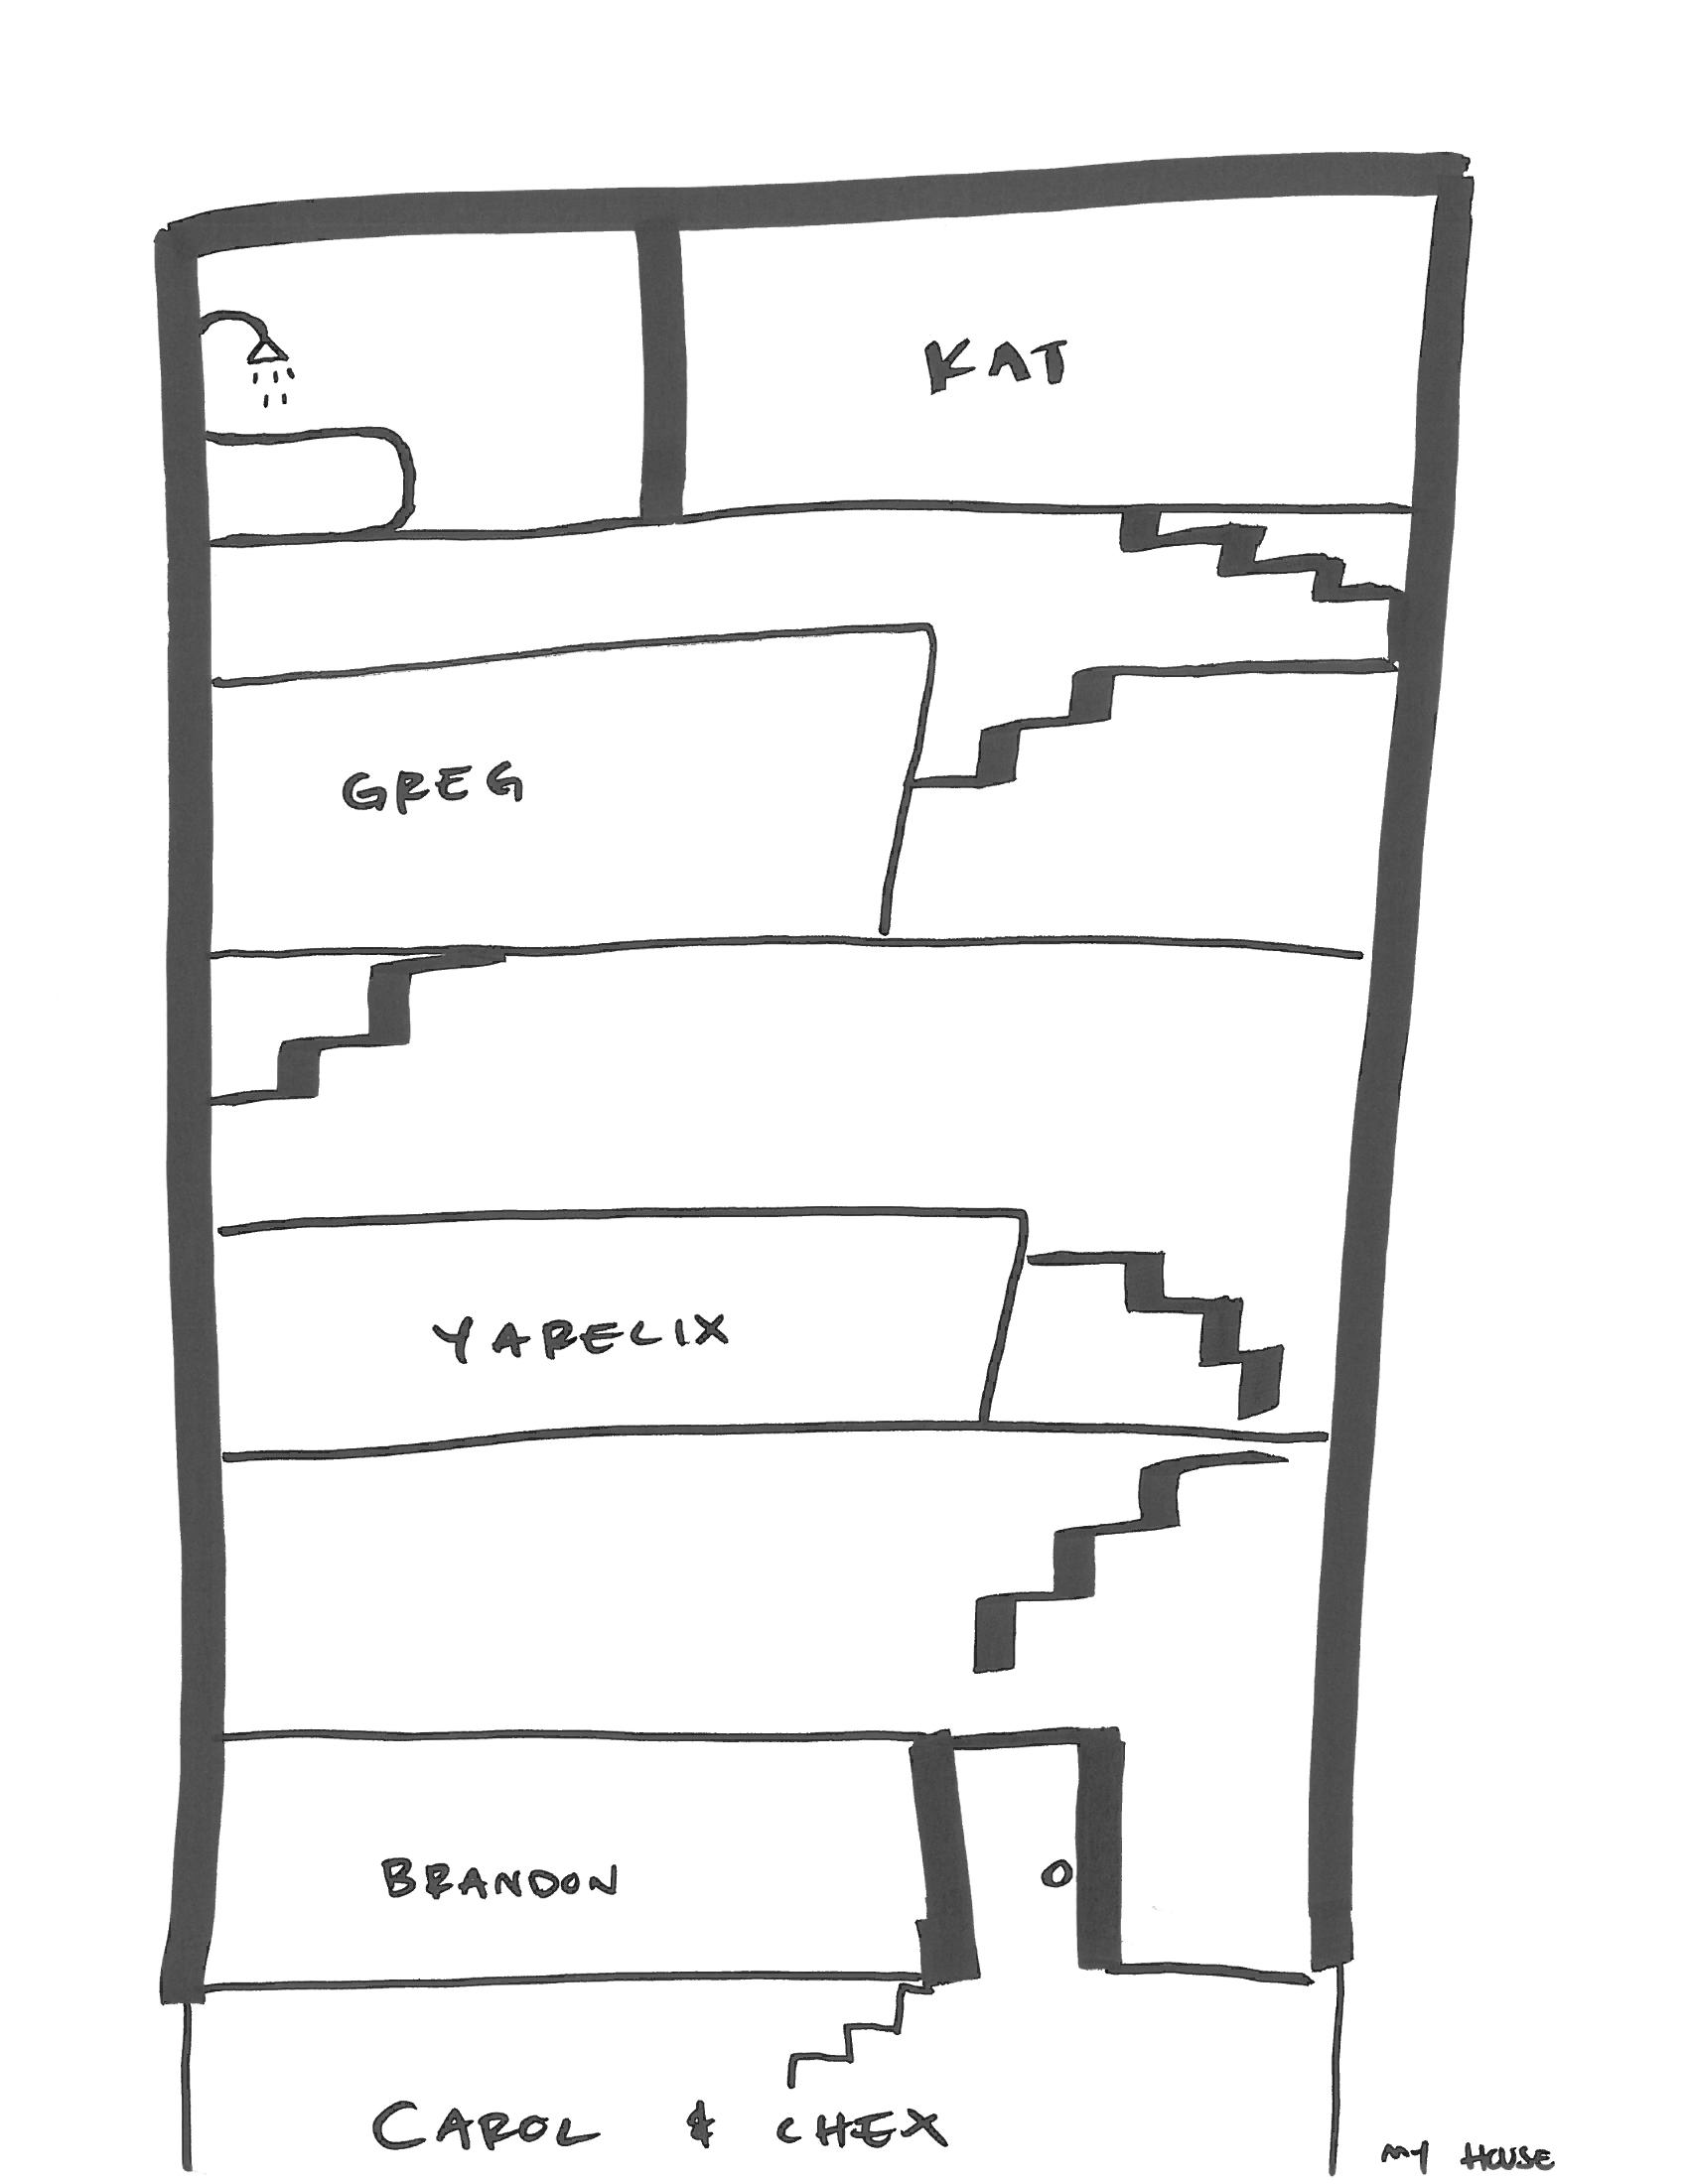 KAT
GREG
YARELIX
BRANDON
CAROL & CHEX
MY HOUSE